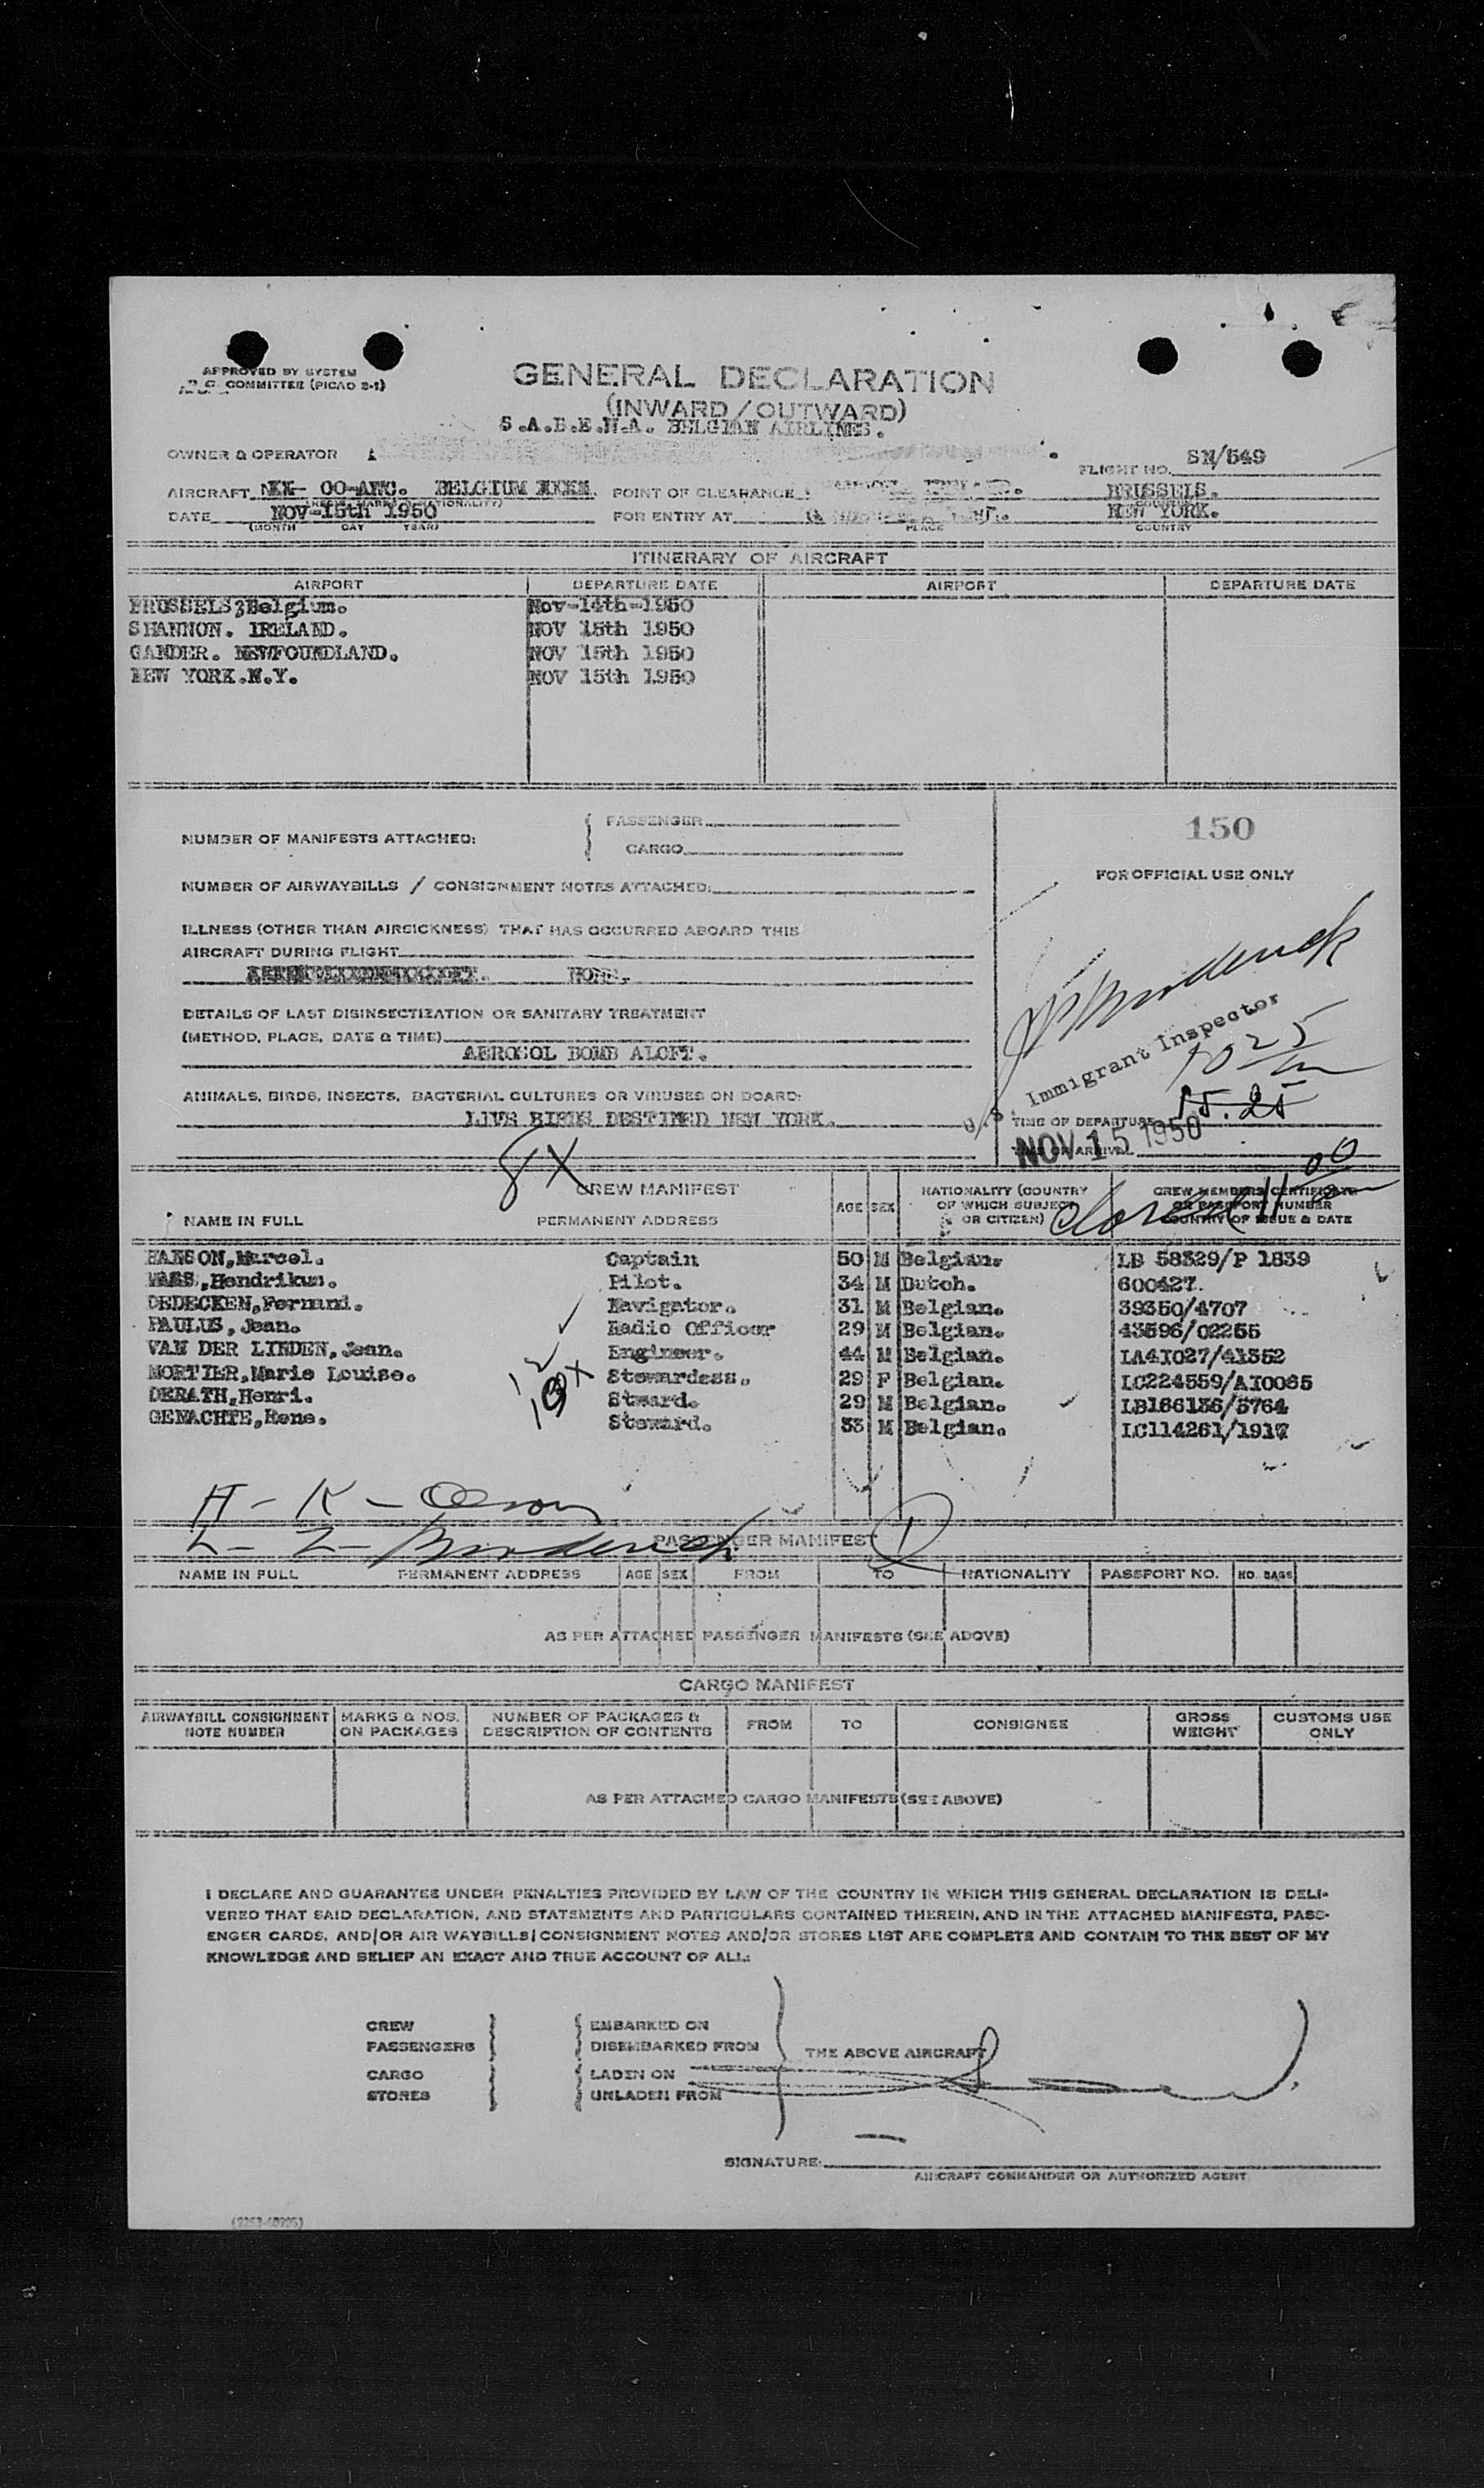 APPROVED BY SYSTEM
COMMITTEE (PICAO 2-1)
GENERAL DECLARATION
(INWARD/OUTWARD)
S.A.B.E.N.A. BELGIAN AIRLINES.
OWNER & OPERATOR
FLIGHT NO. SN/549
AIRCRAFT OO-AWC. BELGIUM POINT OF CLEARANCE BRUSSELS.
DATE Nov-15th 1950 FOR ENTRY AT NEW YORK.
(MONTH DAY YEAR) PLACE COUNTRY
ITINERARY OF AIRCRAFT
AIRPORT DEPARTURE DATE AIRPORT DEPARTURE DATE
BRUSSELS;Belgium. Nov-14th-1950
SHANNON. IRELAND. NOV 15th 1950
GANDER. NEWFOUNDLAND. NOV 15th 1950
NEW YORK.N.Y. NOV 15th 1950
NUMBER OF MANIFESTS ATTACHED: PASSENGER
CARGO
150
FOR OFFICIAL USE ONLY
NUMBER OF AIRWAYBILLS / CONSIGNMENT NOTES ATTACHED:
ILLNESS (OTHER THAN AIRSICKNESS) THAT HAS OCCURRED ABOARD THIS
AIRCRAFT DURING FLIGHT
NONE.
DETAILS OF LAST DISINSECTIZATION OR SANITARY TREATMENT
(METHOD, PLACE, DATE & TIME)
AEROSOL BOMB ALOFT.
ANIMALS, BIRDS, INSECTS, BACTERIAL CULTURES OR VIRUSES ON BOARD:
LIVE BIRDS DESTINED NEW YORK.
Broderick
U.S. Immigrant Inspector
10 25
TIME OF DEPARTURE 15.25
NOV 15 1950
8X
closed 11 00
CREW MANIFEST
NAME IN FULL PERMANENT ADDRESS AGE SEX NATIONALITY (COUNTRY OF WHICH SUBJECT OR CITIZEN) CREW MEMBERS CERTIFICATE OR PASSPORT NUMBER COUNTRY OF ISSUE & DATE
HANSON,Marcel. Captain 50 M Belgian. LB 58329/P 1839
MAES,Hendrikus. Pilot. 34 M Dutch. 600427.
DEDECKEN,Fernand. Navigator. 31 M Belgian. 39350/4707
PAULUS,Jean. Radio Officer 29 M Belgian. 43596/02255
VAN DER LINDEN,Jean. Engineer. 44 M Belgian. LA41027/41352
MORTIER,Marie Louise. Stewardess. 29 F Belgian. LC224559/AI0065
DERATH,Henri. Steward. 29 M Belgian. LB186136/5764
GEMACHTE,Rene. Steward. 33 M Belgian. LC114261/1917
H - K - Olson
L - Z - Broderick
PASSENGER MANIFEST
NAME IN FULL PERMANENT ADDRESS AGE SEX FROM TO NATIONALITY PASSPORT NO. NO. BAGS
AS PER ATTACHED PASSENGER MANIFESTS (SEE ABOVE)
CARGO MANIFEST
AIRWAYBILL CONSIGNMENT NOTE NUMBER MARKS & NOS. ON PACKAGES NUMBER OF PACKAGES & DESCRIPTION OF CONTENTS FROM TO CONSIGNEE GROSS WEIGHT CUSTOMS USE ONLY
AS PER ATTACHED CARGO MANIFESTS (SEE ABOVE)
I DECLARE AND GUARANTEE UNDER PENALTIES PROVIDED BY LAW OF THE COUNTRY IN WHICH THIS GENERAL DECLARATION IS DELI-
VERED THAT SAID DECLARATION, AND STATEMENTS AND PARTICULARS CONTAINED THEREIN, AND IN THE ATTACHED MANIFESTS, PASS-
ENGER CARDS, AND/OR AIR WAYBILLS/CONSIGNMENT NOTES AND/OR STORES LIST ARE COMPLETE AND CONTAIN TO THE BEST OF MY
KNOWLEDGE AND BELIEF AN EXACT AND TRUE ACCOUNT OF ALL:
CREW EMBARKED ON
PASSENGERS DISEMBARKED FROM
THE ABOVE AIRCRAFT
CARGO LADEN ON
STORES UNLADEN FROM
SIGNATURE:
AIRCRAFT COMMANDER OR AUTHORIZED AGENT